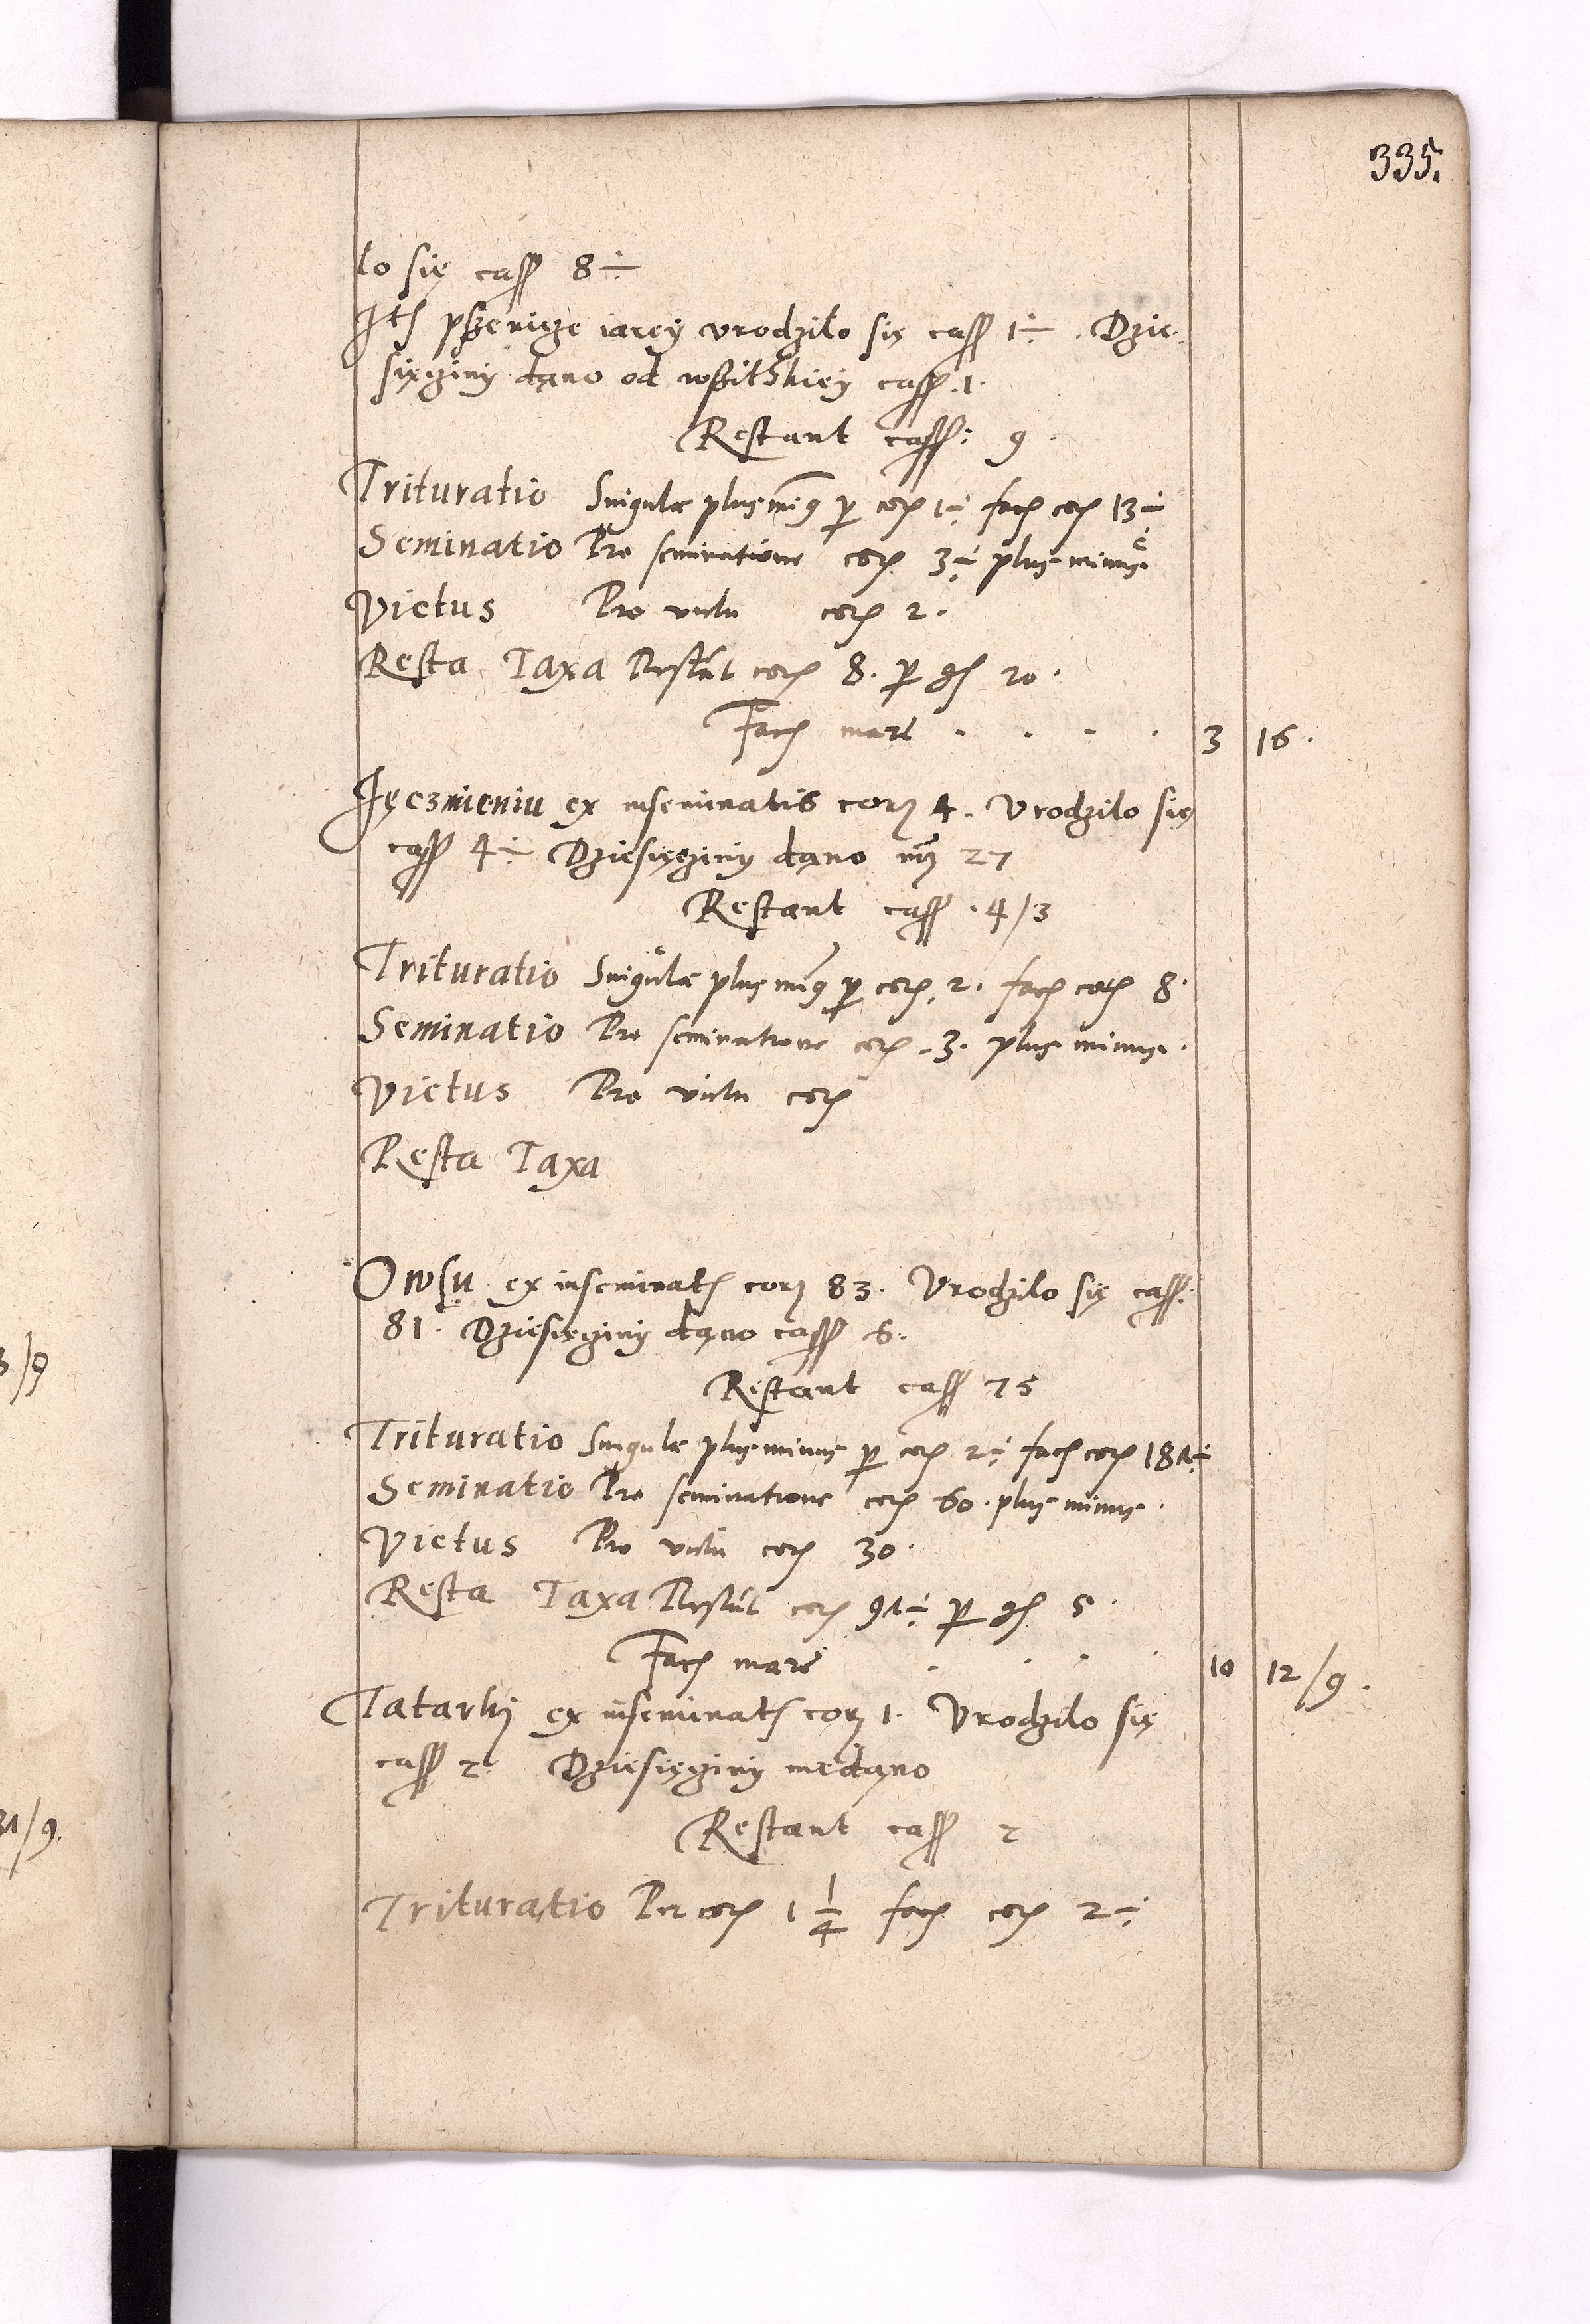 335.
lo się cass 8 ÷
Itē pszenicze iarey vrodziło się cass 1 ÷ . Dzie-
sięciny dano od wszitskiey cass .1.
Restant cass: 9.
Trituratio Singulae plus min9 p cor 1 ÷ fac cor 13 ÷
Seminatio Pro seminatione cor 3 ÷ plus minus
Victus Pro victu cor 2.
Resta Taxa Restāt cor 8. p gs 20.
Fac marc . . . . 3 16.
Jęczmieniu ex inseminatis cor 4. Vrodzilo się
cass 4 ÷ Dziesięciny dano 27
Restant cass .4/3
Trituratio Singulae plus min9 p cor. 2. fac cor 8.
Seminatio Pro seminatione cor .3. plus minus.
Victus Pro victu cor
Resta Taxa
Owsu ex inseminat cor 83. Vrodzilo się cass:
81. Dziesięciny dano cass 6.
Restant cass 75
Trituratio Singulae plus minus p cor 2 ÷ fac cor 181 ÷
Seminatio Pro seminatione cor 60. plus minus.
Victus Pro victu cor 30.
Resta Taxa Restāt cor 91 ÷ p gs 5.
Fac marc . . . . 10 12/9.
Tatarki ex inseminat cor 1. Vrodzilo się
cass 2. Dziesięciny niedano
Restant cass 2
Trituratio Per cor 1 1/4 fac cor 2 ÷
3/9
31/9.